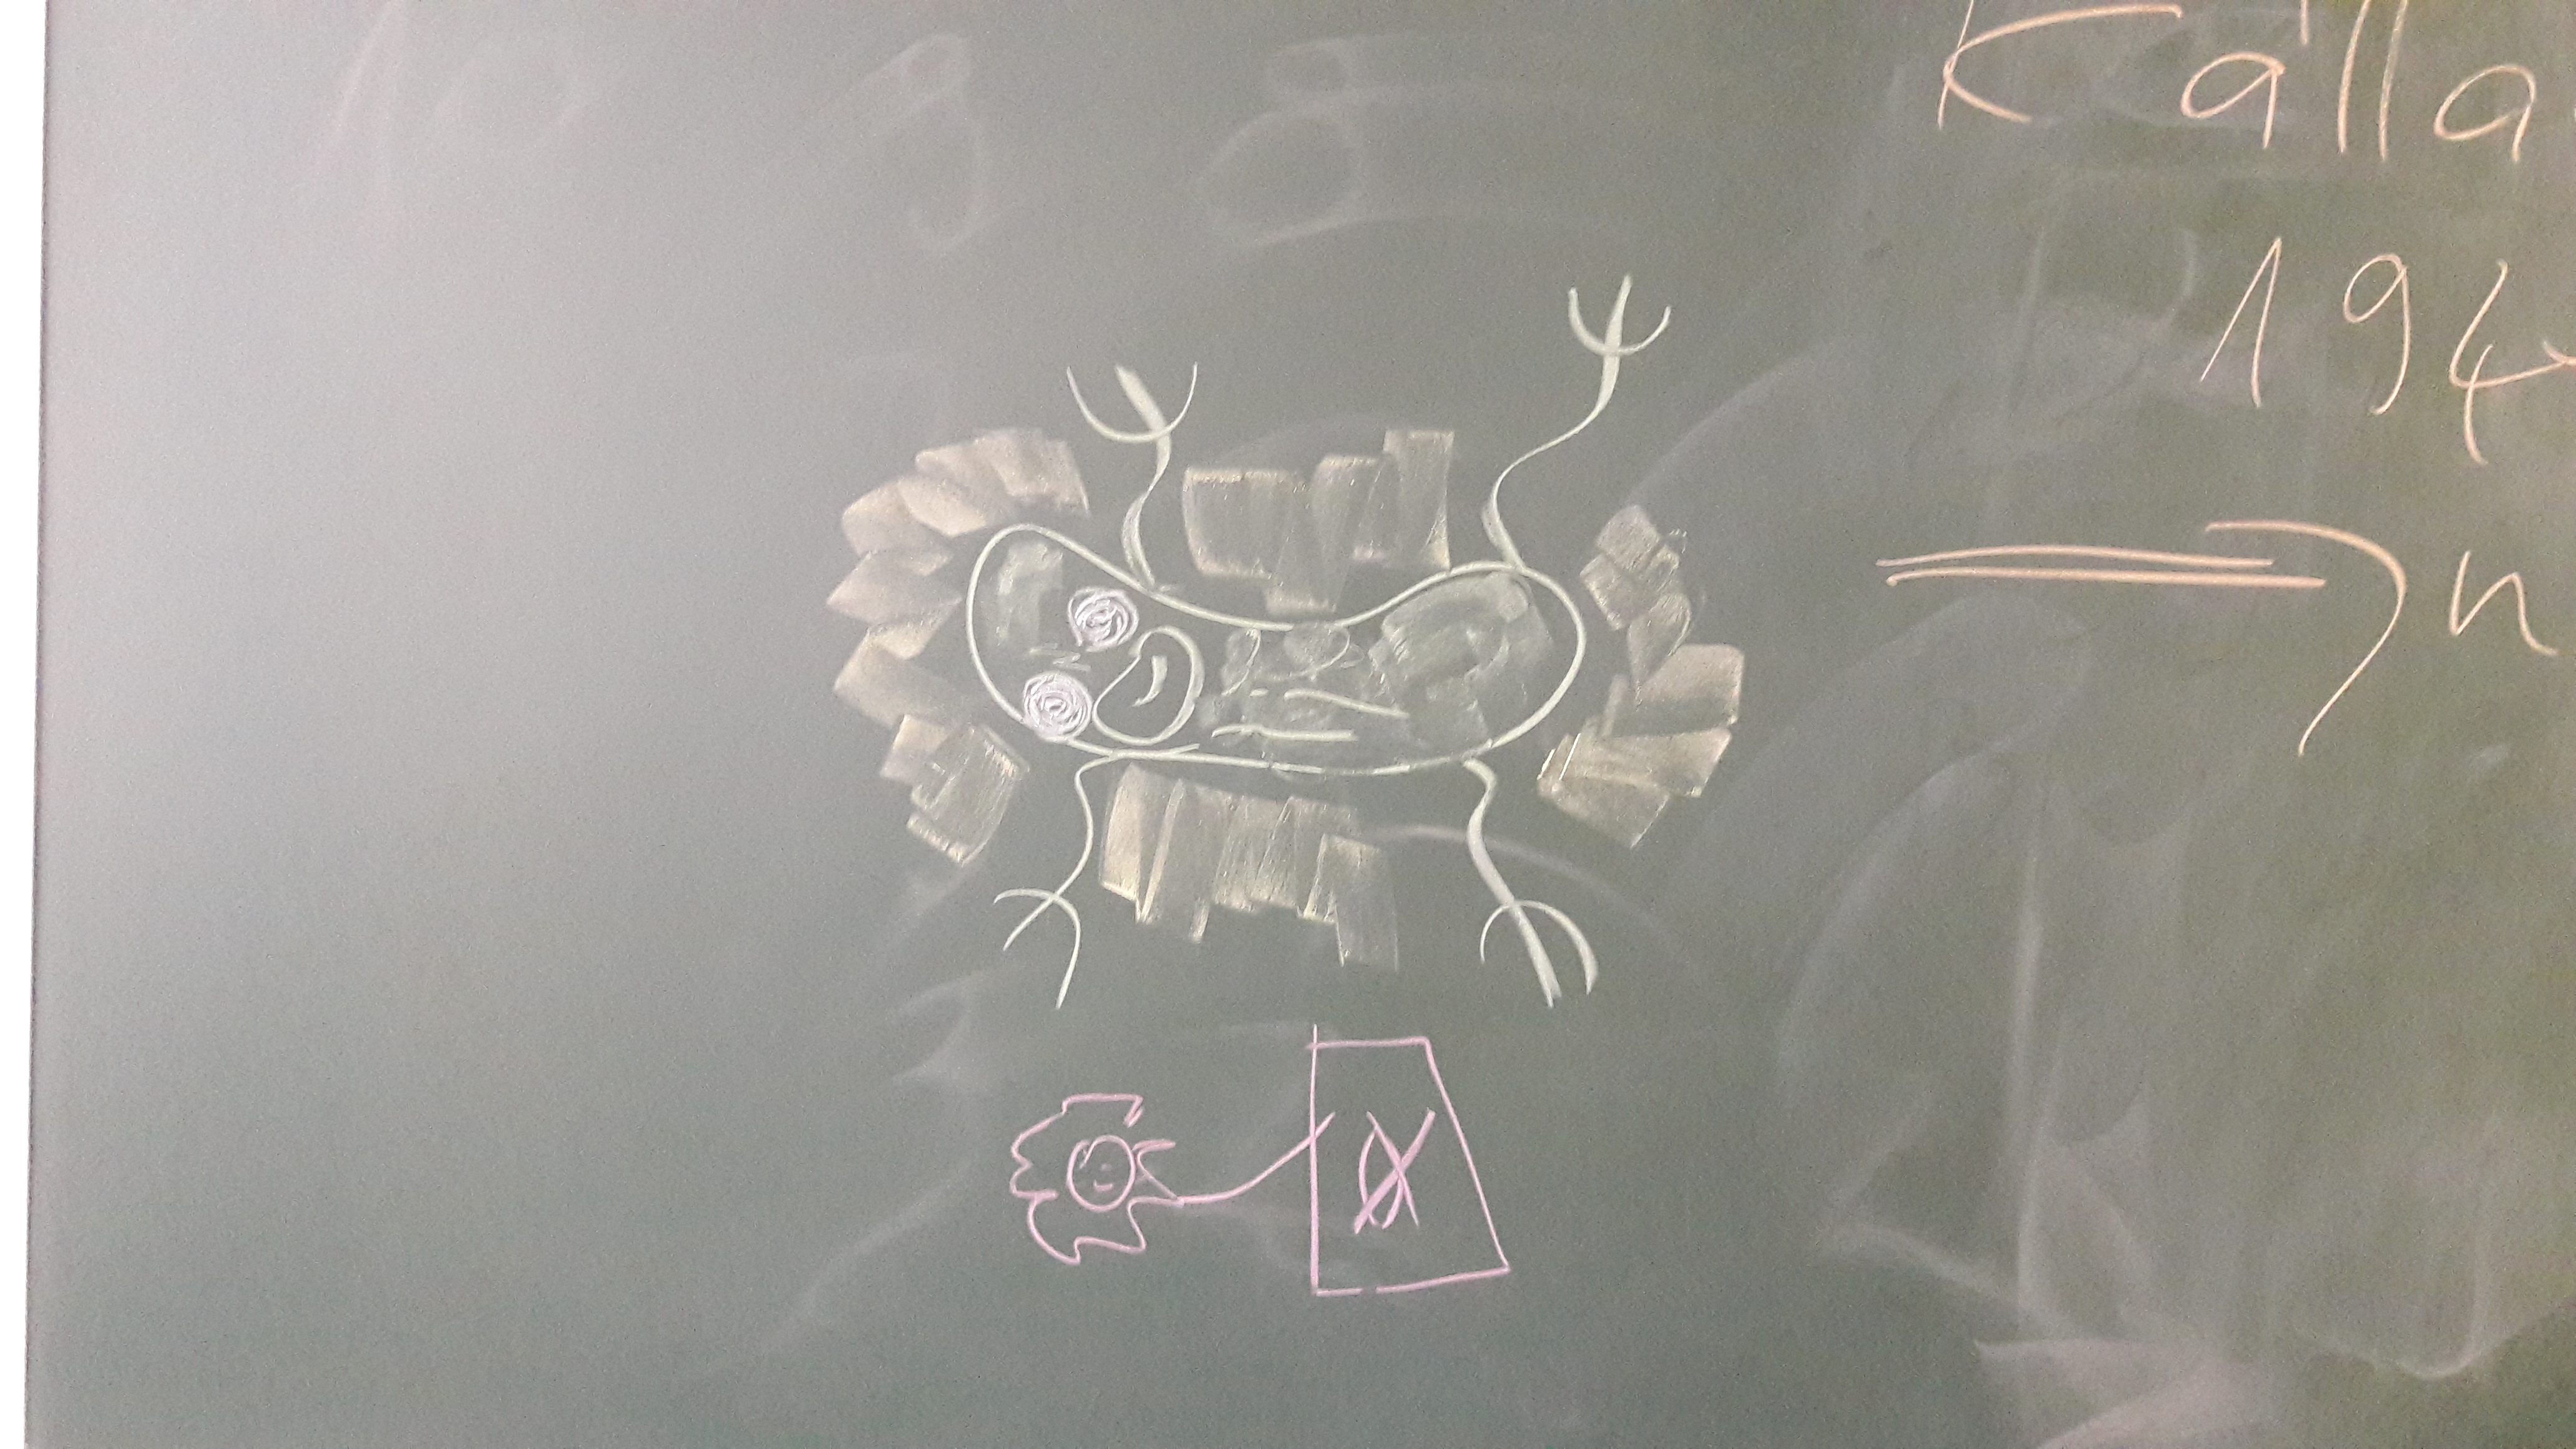 Kálla
194
n